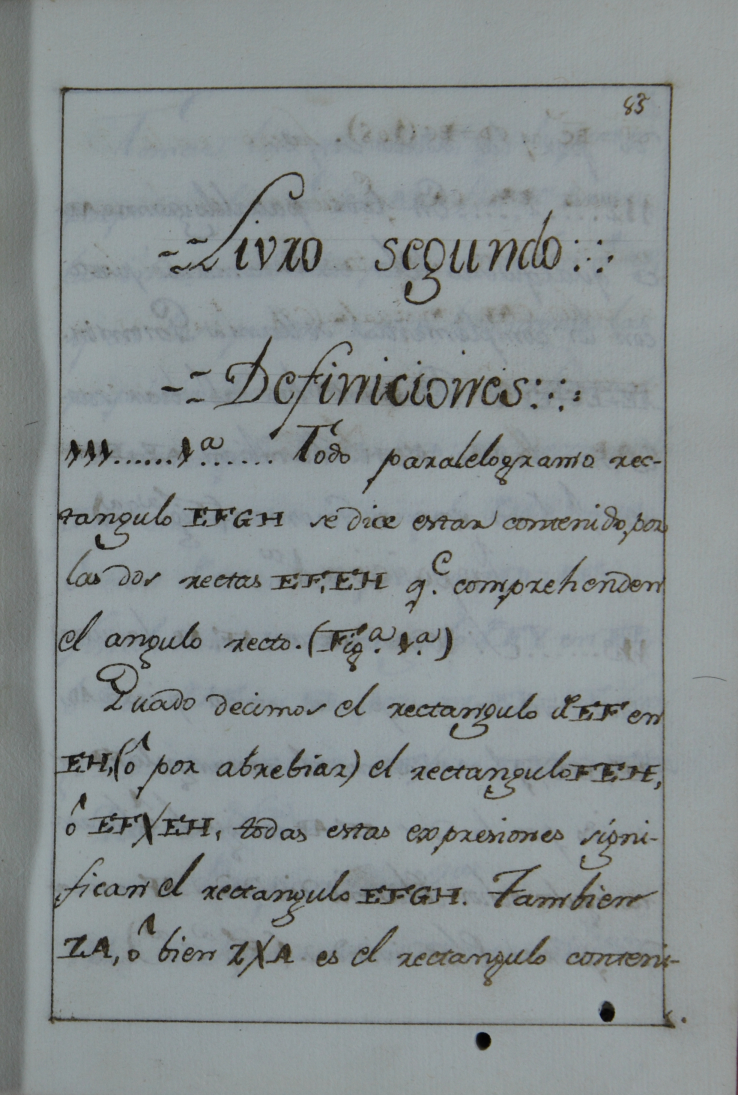 83
Livro segundo
Definiciones
111......1.ª...... Todo paralelogramo rec-
tangulo EFGH se dice estar contenido, por
las dos rectas EF,EH q.e comprehenden
el angulo recto. (Fig.ª 1.ª)
Quãdo decimos el rectangulo de EF en
EH, (ô por abrebiar) el rectangulo FEH,
ô EFXEH, todas estas expresiones signi-
fican el rectangulo EFGH. Tambien
ZA, ô bien ZXA es el rectangulo conteni-